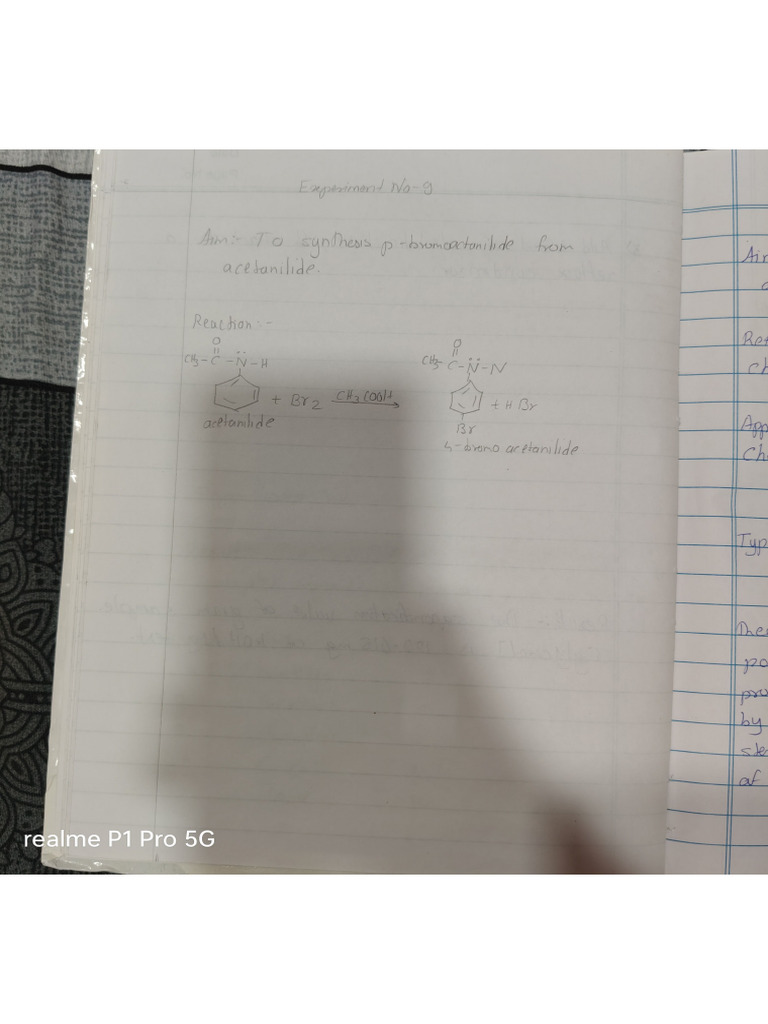 Experiment No-9
Aim:- To synthesis p-bromoactanilide from
acetanilide.
Reaction:-
O
CH3-C-N-H
+ Br2 CH3COOH
acetanilide
O
CH3-C-N-N
+ H Br
Br
4-bromo acetanilide
Air
Ret
ch
App
Che
Typ
The
po
pro
by
ste
of
realme P1 Pro 5G